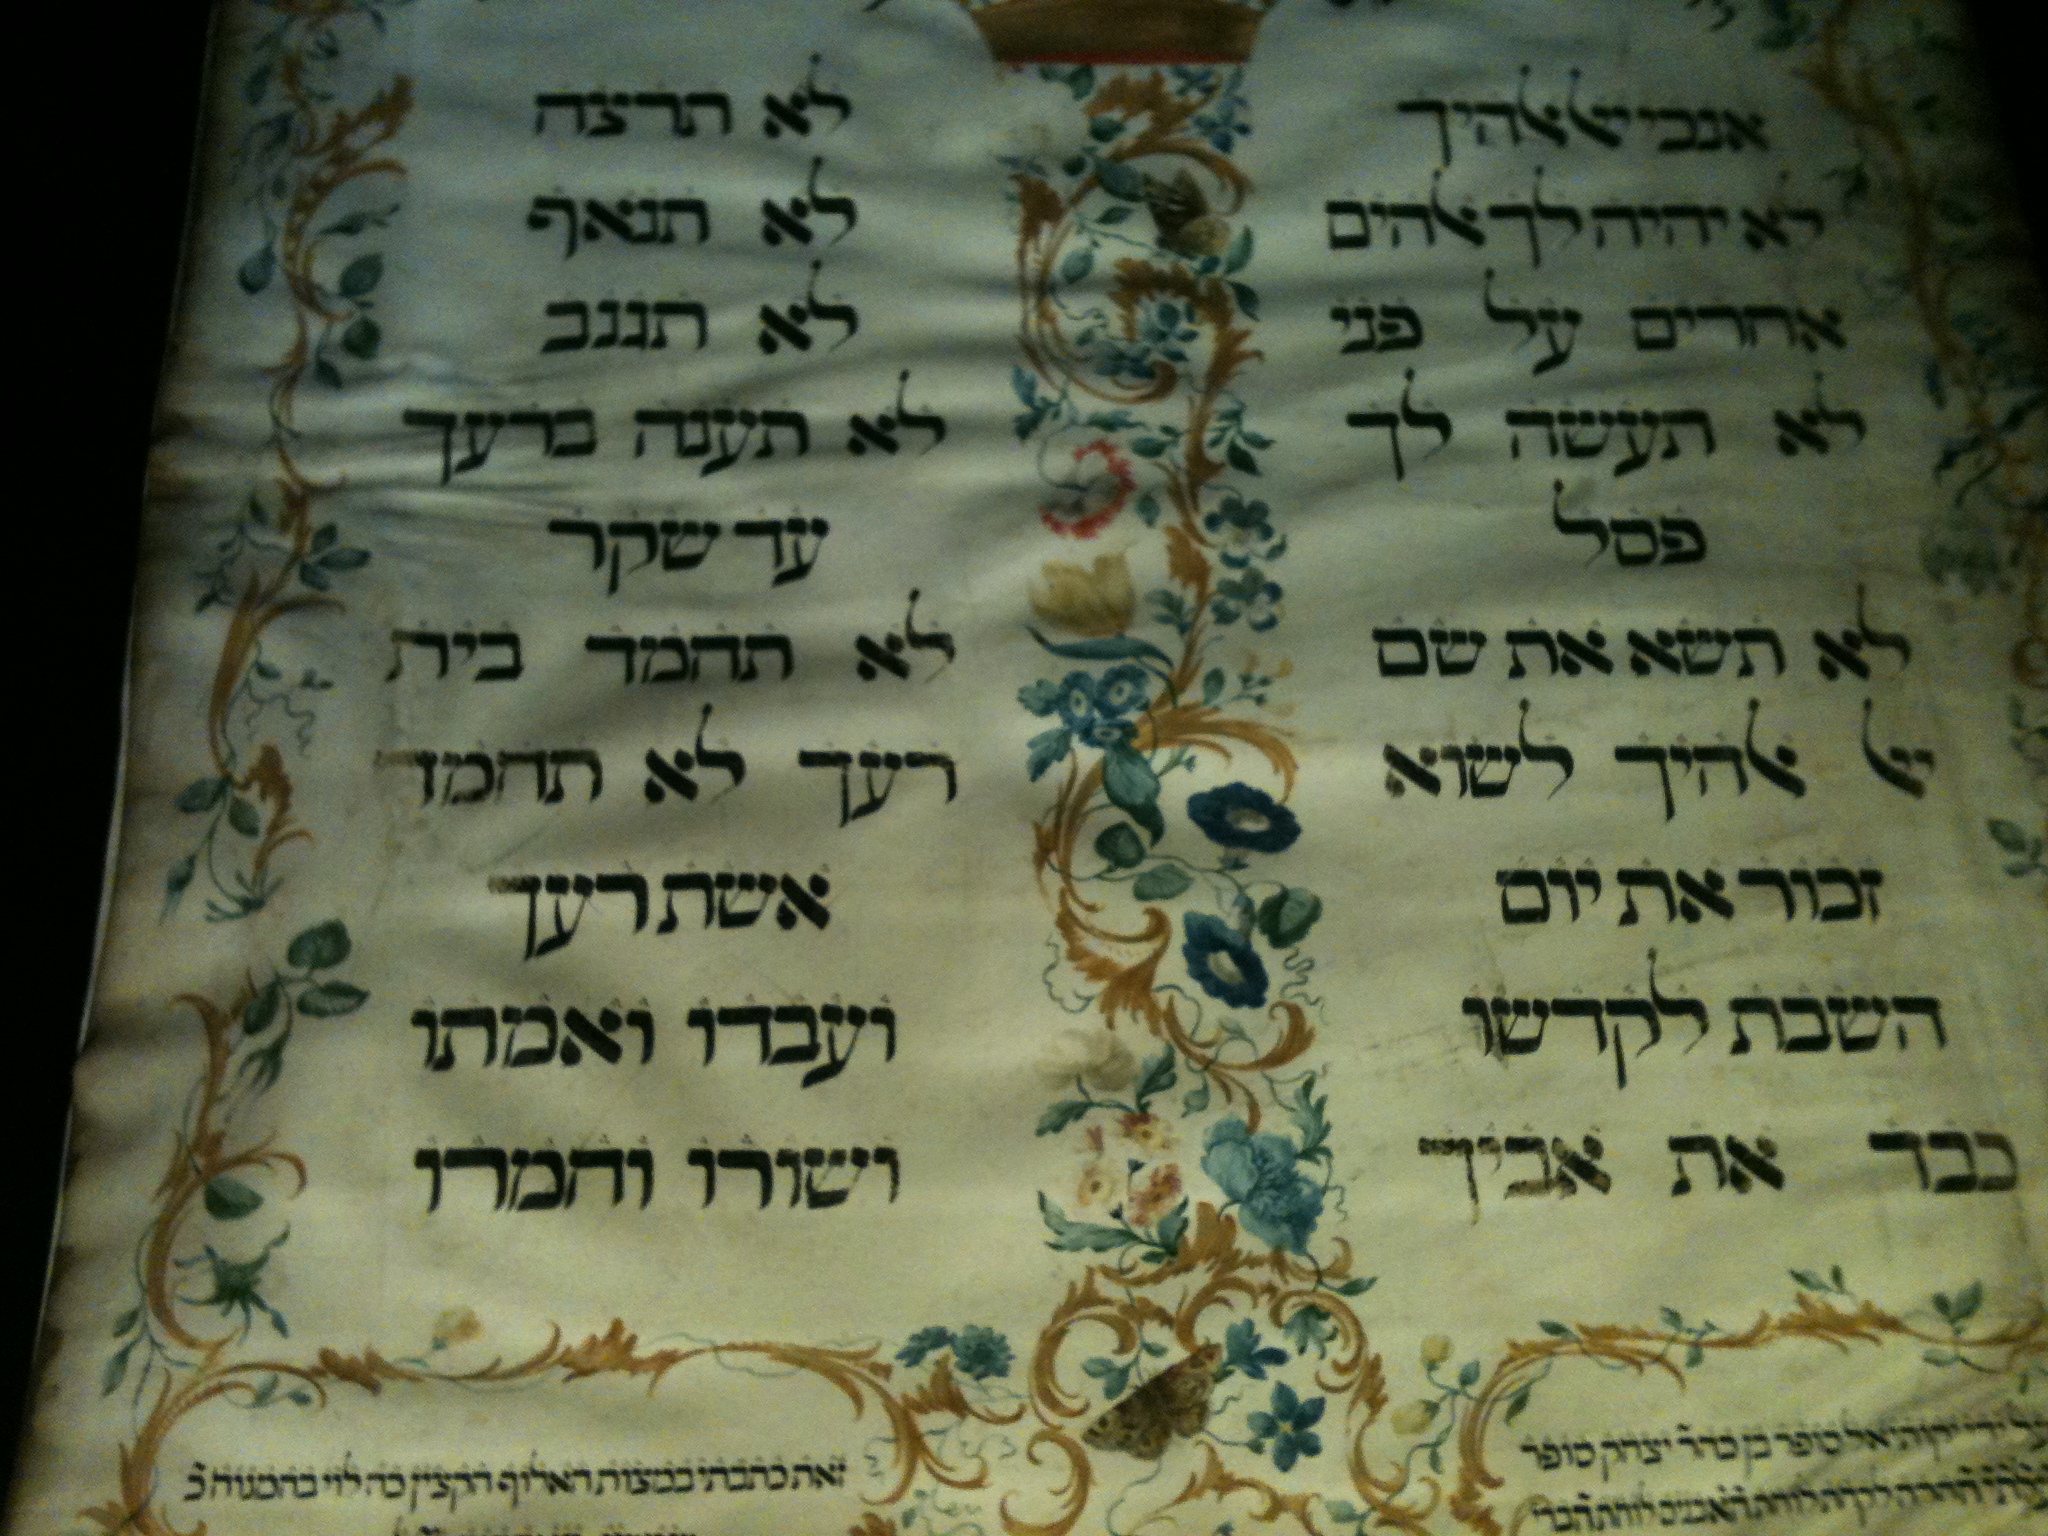 אנכי יי אלהיך
לא יהיה לך אלהים
אחרים על פני
לא תעשה לך
פסל
לא תשא את שם
יי אלהיך לשוא
זכור את יום
השבת לקדשו
כבד את אביך
לא תרצח
לא תנאף
לא תגנב
לא תענה ברעך
עד שקר
לא תחמד בית
רעך לא תחמד
אשת רעך
ועבדו ואמתו
ושורו וחמרו
על ידי יקותיאל סופר בן כהר יצחק סופר
זאת כתבתי במצות האלוף הקצין כה לוי